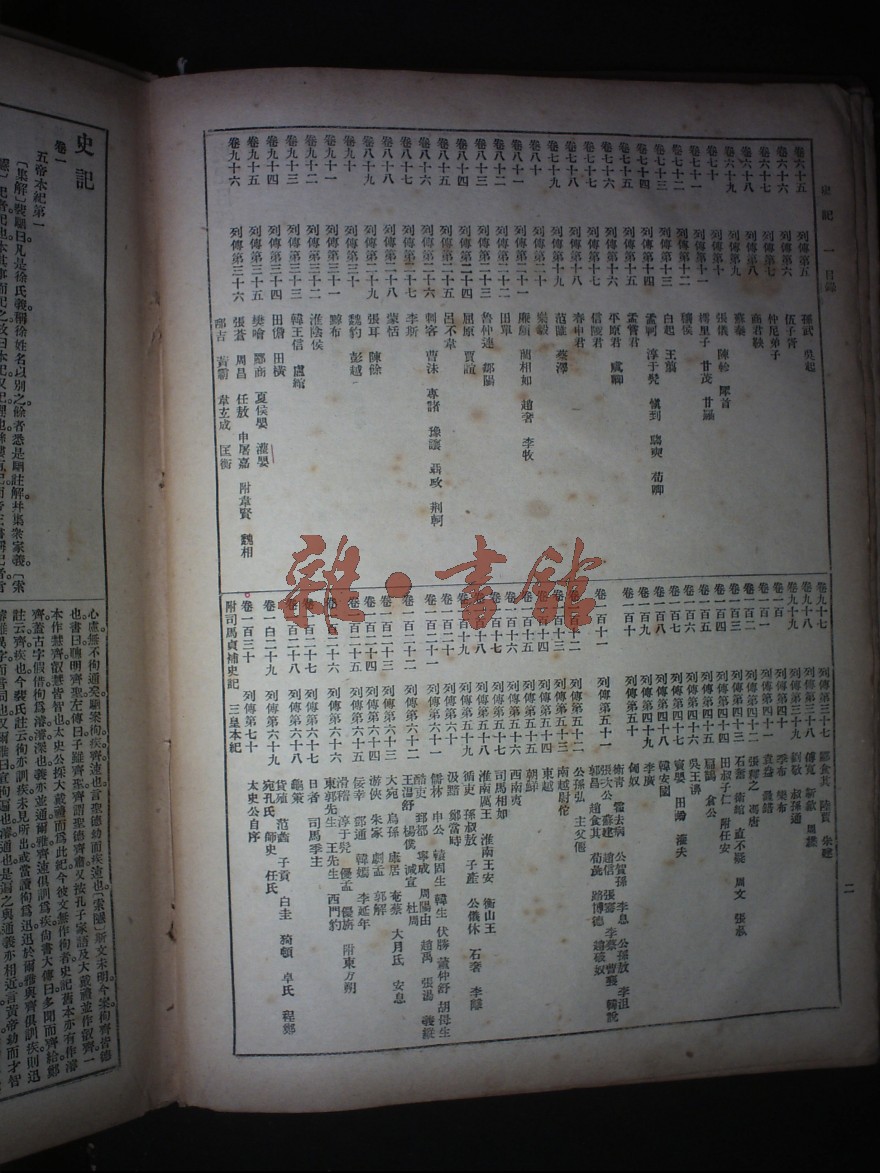 史記 一 目錄
卷六十五 列傳第五 孫武 吳起
卷六十六 列傳第六 伍子胥
卷六十七 列傳第七 仲尼弟子
卷六十八 列傳第八 商君鞅
卷六十九 列傳第九 蘇秦
卷七十 列傳第十 張儀 陳軫 犀首
卷七十一 列傳第十一 樗里子 甘茂 甘羅
卷七十二 列傳第十二 穰侯
卷七十三 列傳第十三 白起 王翦
卷七十四 列傳第十四 孟軻 淳于髡 慎到 騶奭 荀卿
卷七十五 列傳第十五 孟嘗君
卷七十六 列傳第十六 平原君 虞卿
卷七十七 列傳第十七 信陵君
卷七十八 列傳第十八 春申君
卷七十九 列傳第十九 范雎 蔡澤
卷八十 列傳第二十 樂毅
卷八十一 列傳第二十一 廉頗 藺相如 趙奢 李牧
卷八十二 列傳第二十二 田單
卷八十三 列傳第二十三 魯仲連 鄒陽
卷八十四 列傳第二十四 屈原 賈誼
卷八十五 列傳第二十五 呂不韋
卷八十六 列傳第二十六 刺客 曹沬 專諸 豫讓 聶政 荊軻
卷八十七 列傳第二十七 李斯
卷八十八 列傳第二十八 蒙恬
卷八十九 列傳第二十九 張耳 陳餘
卷九十 列傳第三十 魏豹 彭越
卷九十一 列傳第三十一 黥布
卷九十二 列傳第三十二 淮陰侯
卷九十三 列傳第三十三 韓王信 盧綰
卷九十四 列傳第三十四 田儋 田橫
卷九十五 列傳第三十五 樊噲 酈商 夏侯嬰 灌嬰
卷九十六 列傳第三十六 張蒼 周昌 任敖 申屠嘉 附韋賢 魏相
邴吉 黃霸 韋玄成 匡衡
卷九十七 列傳第三十七 酈食其 陸賈 朱建
卷九十八 列傳第三十八 傅寬 靳歙 周緤
卷九十九 列傳第三十九 劉敬 叔孫通
卷一百 列傳第四十 季布 欒布
卷一百一 列傳第四十一 袁盎 鼂錯
卷一百二 列傳第四十二 張釋之 馮唐
卷一百三 列傳第四十三 石奮 衛綰 直不疑 周文 張叔
卷一百四 列傳第四十四 田叔子仁 附任安
卷一百五 列傳第四十五 扁鵲 倉公
卷一百六 列傳第四十六 吳王濞
卷一百七 列傳第四十七 竇嬰 田蚡 灌夫
卷一百八 列傳第四十八 韓安國
卷一百九 列傳第四十九 李廣
卷一百十 列傳第五十 匈奴
卷一百十一 列傳第五十一 衛青 霍去病 公孫賀 李息 公孫敖 李沮
張次公 蘇建 趙信 張騫 李蔡 曹襄 韓說
郭昌 趙食其 荀彘 路博德 趙破奴
卷一百十二 列傳第五十二 公孫弘 主父偃
卷一百十三 列傳第五十三 南越尉佗
卷一百十四 列傳第五十四 東越
卷一百十五 列傳第五十五 朝鮮
卷一百十六 列傳第五十六 西南夷
卷一百十七 列傳第五十七 司馬相如
卷一百十八 列傳第五十八 淮南厲王 淮南王安 衡山王
卷一百十九 列傳第五十九 循吏 孫叔敖 子產 公儀休 石奢 李離
卷一百二十 列傳第六十 汲黯 鄭當時
卷一百二十一 列傳第六十一 儒林 申公 轅固生 韓生 伏勝 董仲舒 胡母生
卷一百二十二 列傳第六十二 酷吏 郅都 寧成 周陽由 趙禹 張湯 義縱
王溫舒 楊僕 減宣 杜周
卷一百二十三 列傳第六十三 大宛 烏孫 康居 奄蔡 大月氏 安息
卷一百二十四 列傳第六十四 游俠 朱家 劇孟 郭解
卷一百二十五 列傳第六十五 佞幸 鄧通 韓嫣 李延年
卷一百二十六 列傳第六十六 滑稽 淳于髡 優孟 優旃 附東方朔
東郭先生 王先生 西門豹
卷一百二十七 列傳第六十七 日者 司馬季主
卷一百二十八 列傳第六十八 龜策
卷一百二十九 列傳第六十九 貨殖 范蠡 子貢 白圭 猗頓 卓氏 程鄭
宛孔氏 師史 任氏
卷一百三十 列傳第七十 太史公自序
附司馬貞補史記 三皇本紀
二
雜·書館
史記
卷一
五帝本紀第一
〔集解〕裴駰曰凡是徐氏義稱徐姓名以別之餘者悉是駰註解幷集衆家義〔索
心慮無不徇通矣駰案徇疾齊速也言聖德幼而疾速也〔索隱〕斯文未明今案徇齊皆德
也書曰聰明齊聖左傳曰子雖齊聖謂聖德齊肅又按孔子家語及大戴禮並作叡齊一
本作慧齊叡慧皆智也太史公採大戴禮而為此紀今彼文無作徇者史記舊本亦有作濬
齊蓋古字假借徇為濬濬深也義亦並通爾雅齊速俱訓為疾尚書大傳曰多聞而齊給鄭
註云齊疾也今裴氏註云徇亦訓疾未見所出或當讀徇為迅迅於爾雅與齊俱訓疾則迅
濬雖異字而音同也又爾雅曰宣徇遍也濬通也是遍之與通義亦相近言黃帝幼而才智